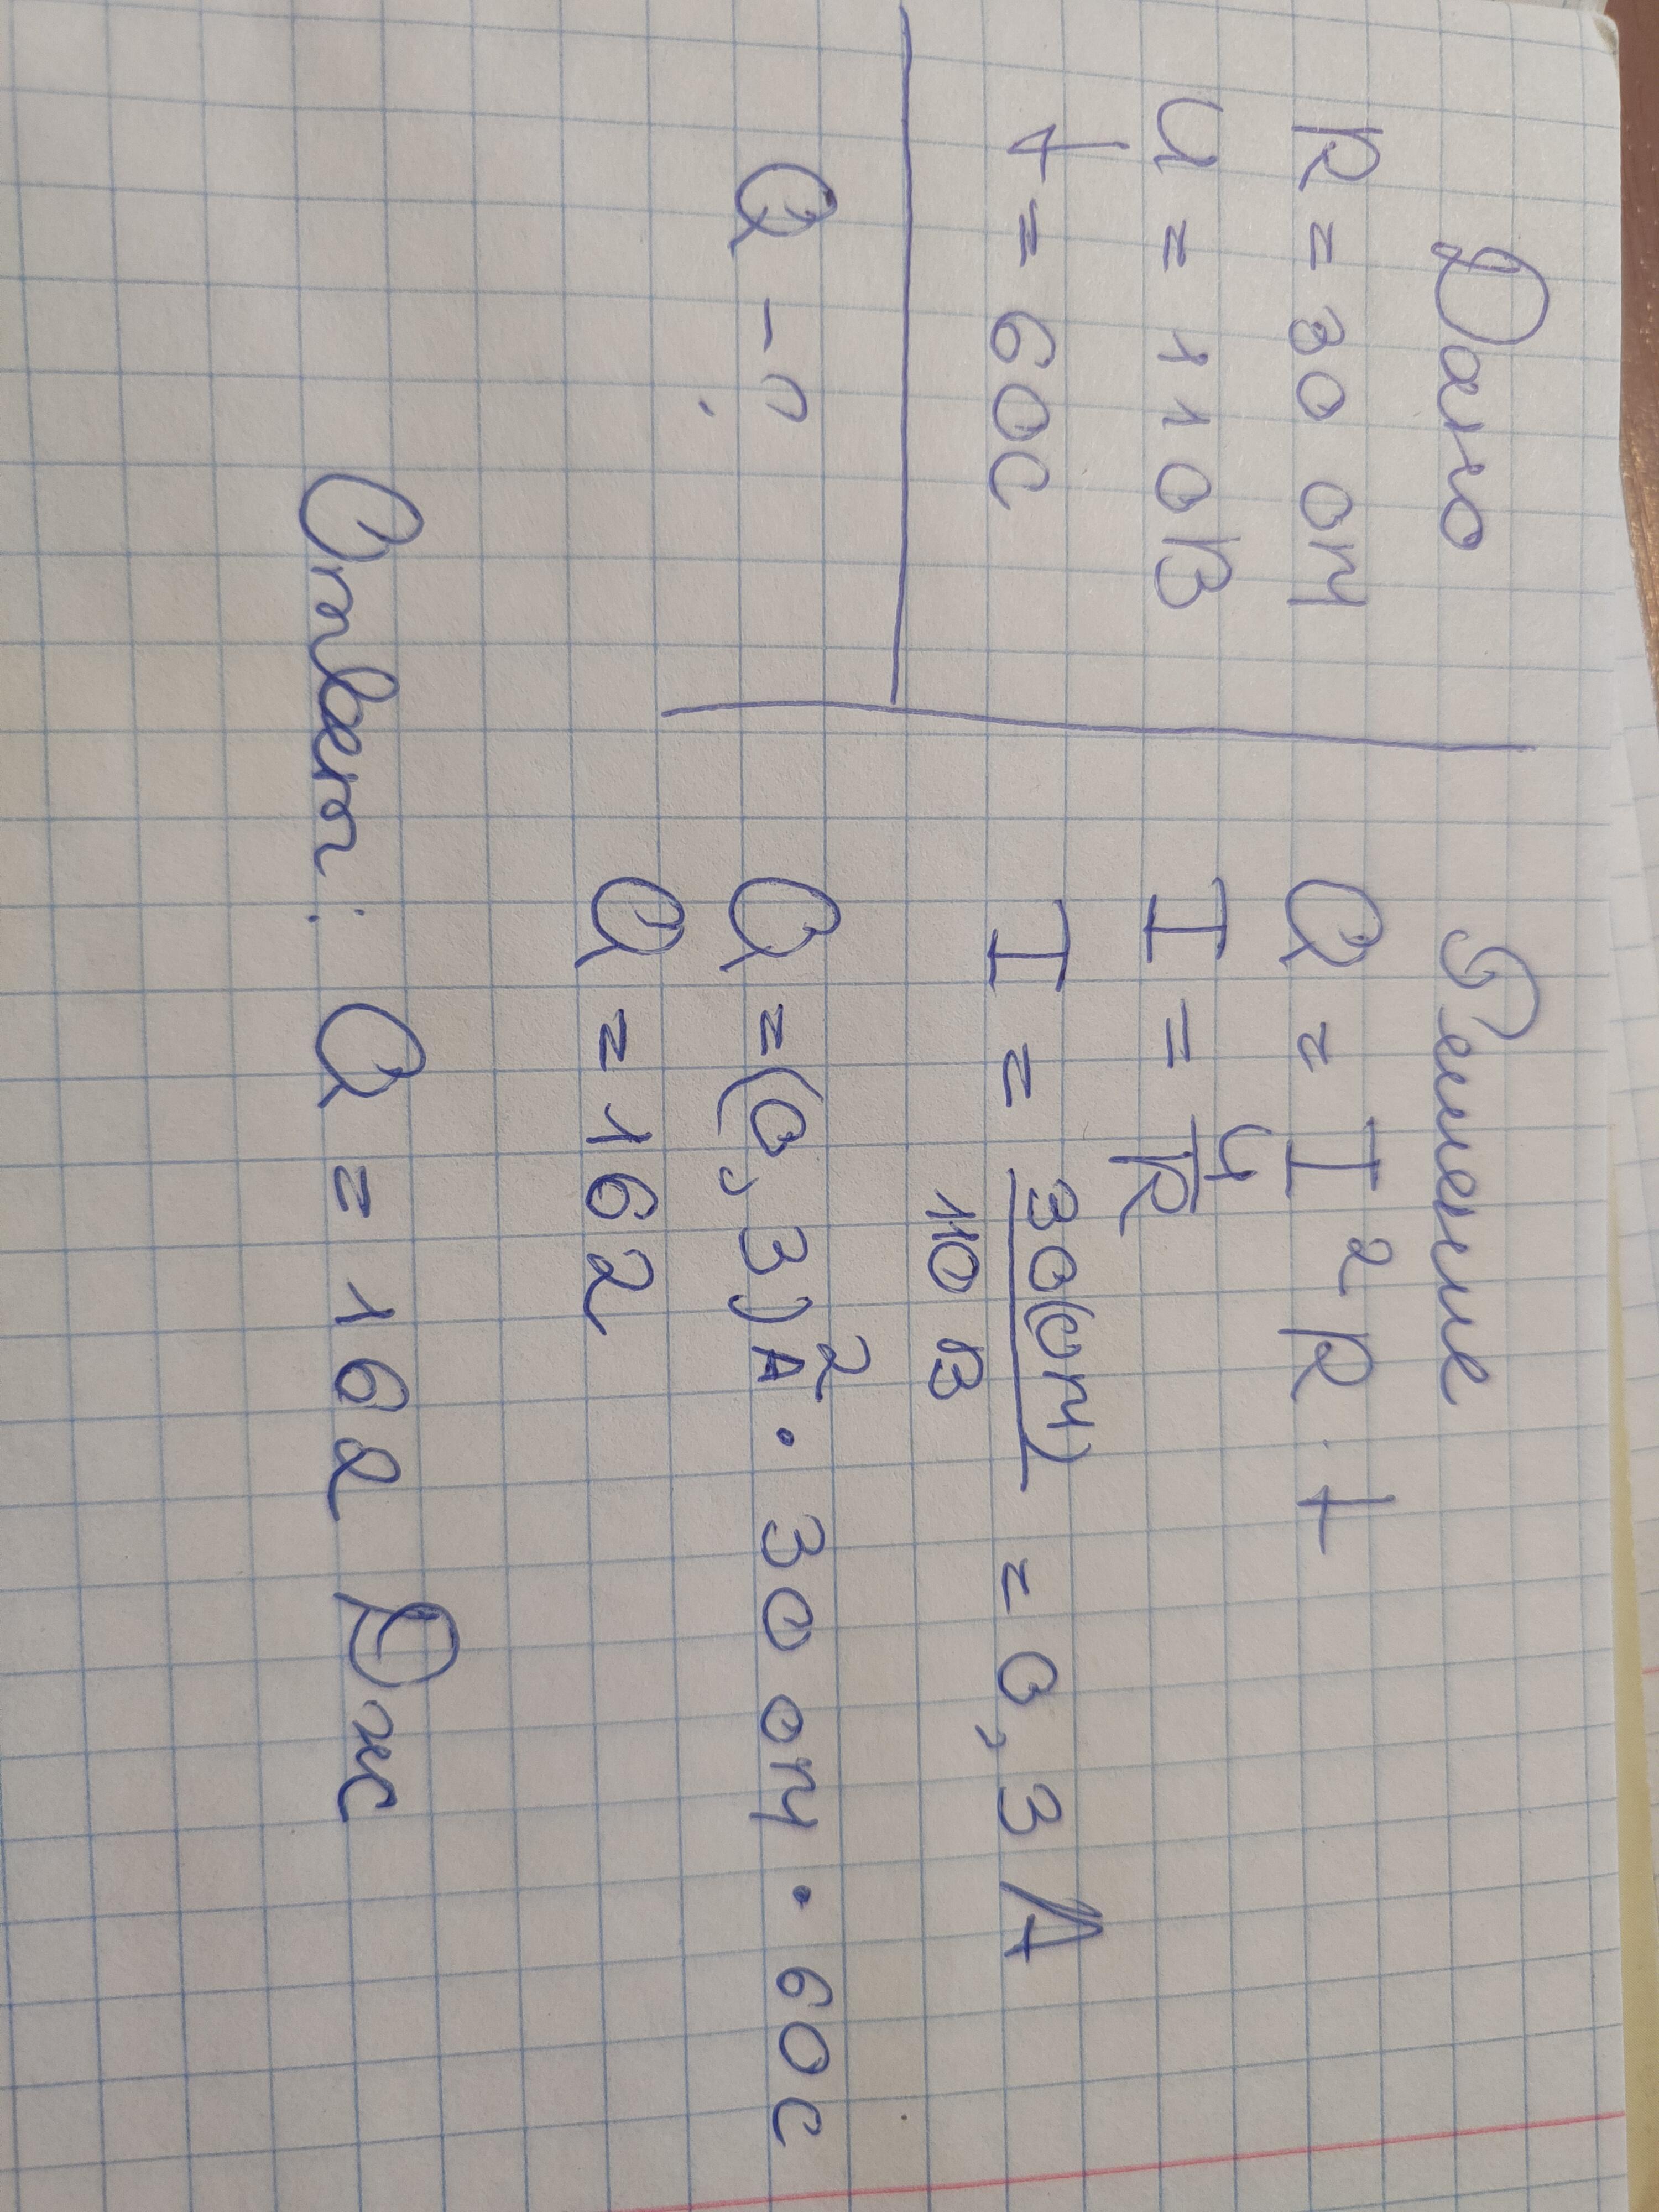 Дано
R = 30 Ом
U = 110В
t = 60С
Q - ?
Решение
Q = I²Rt
I = U/R
I = 30(Ом)/110 В = 0,3 А
Q = (0,3)²А · 30 Ом · 60с
Q = 162
Ответ: Q = 162 Дж